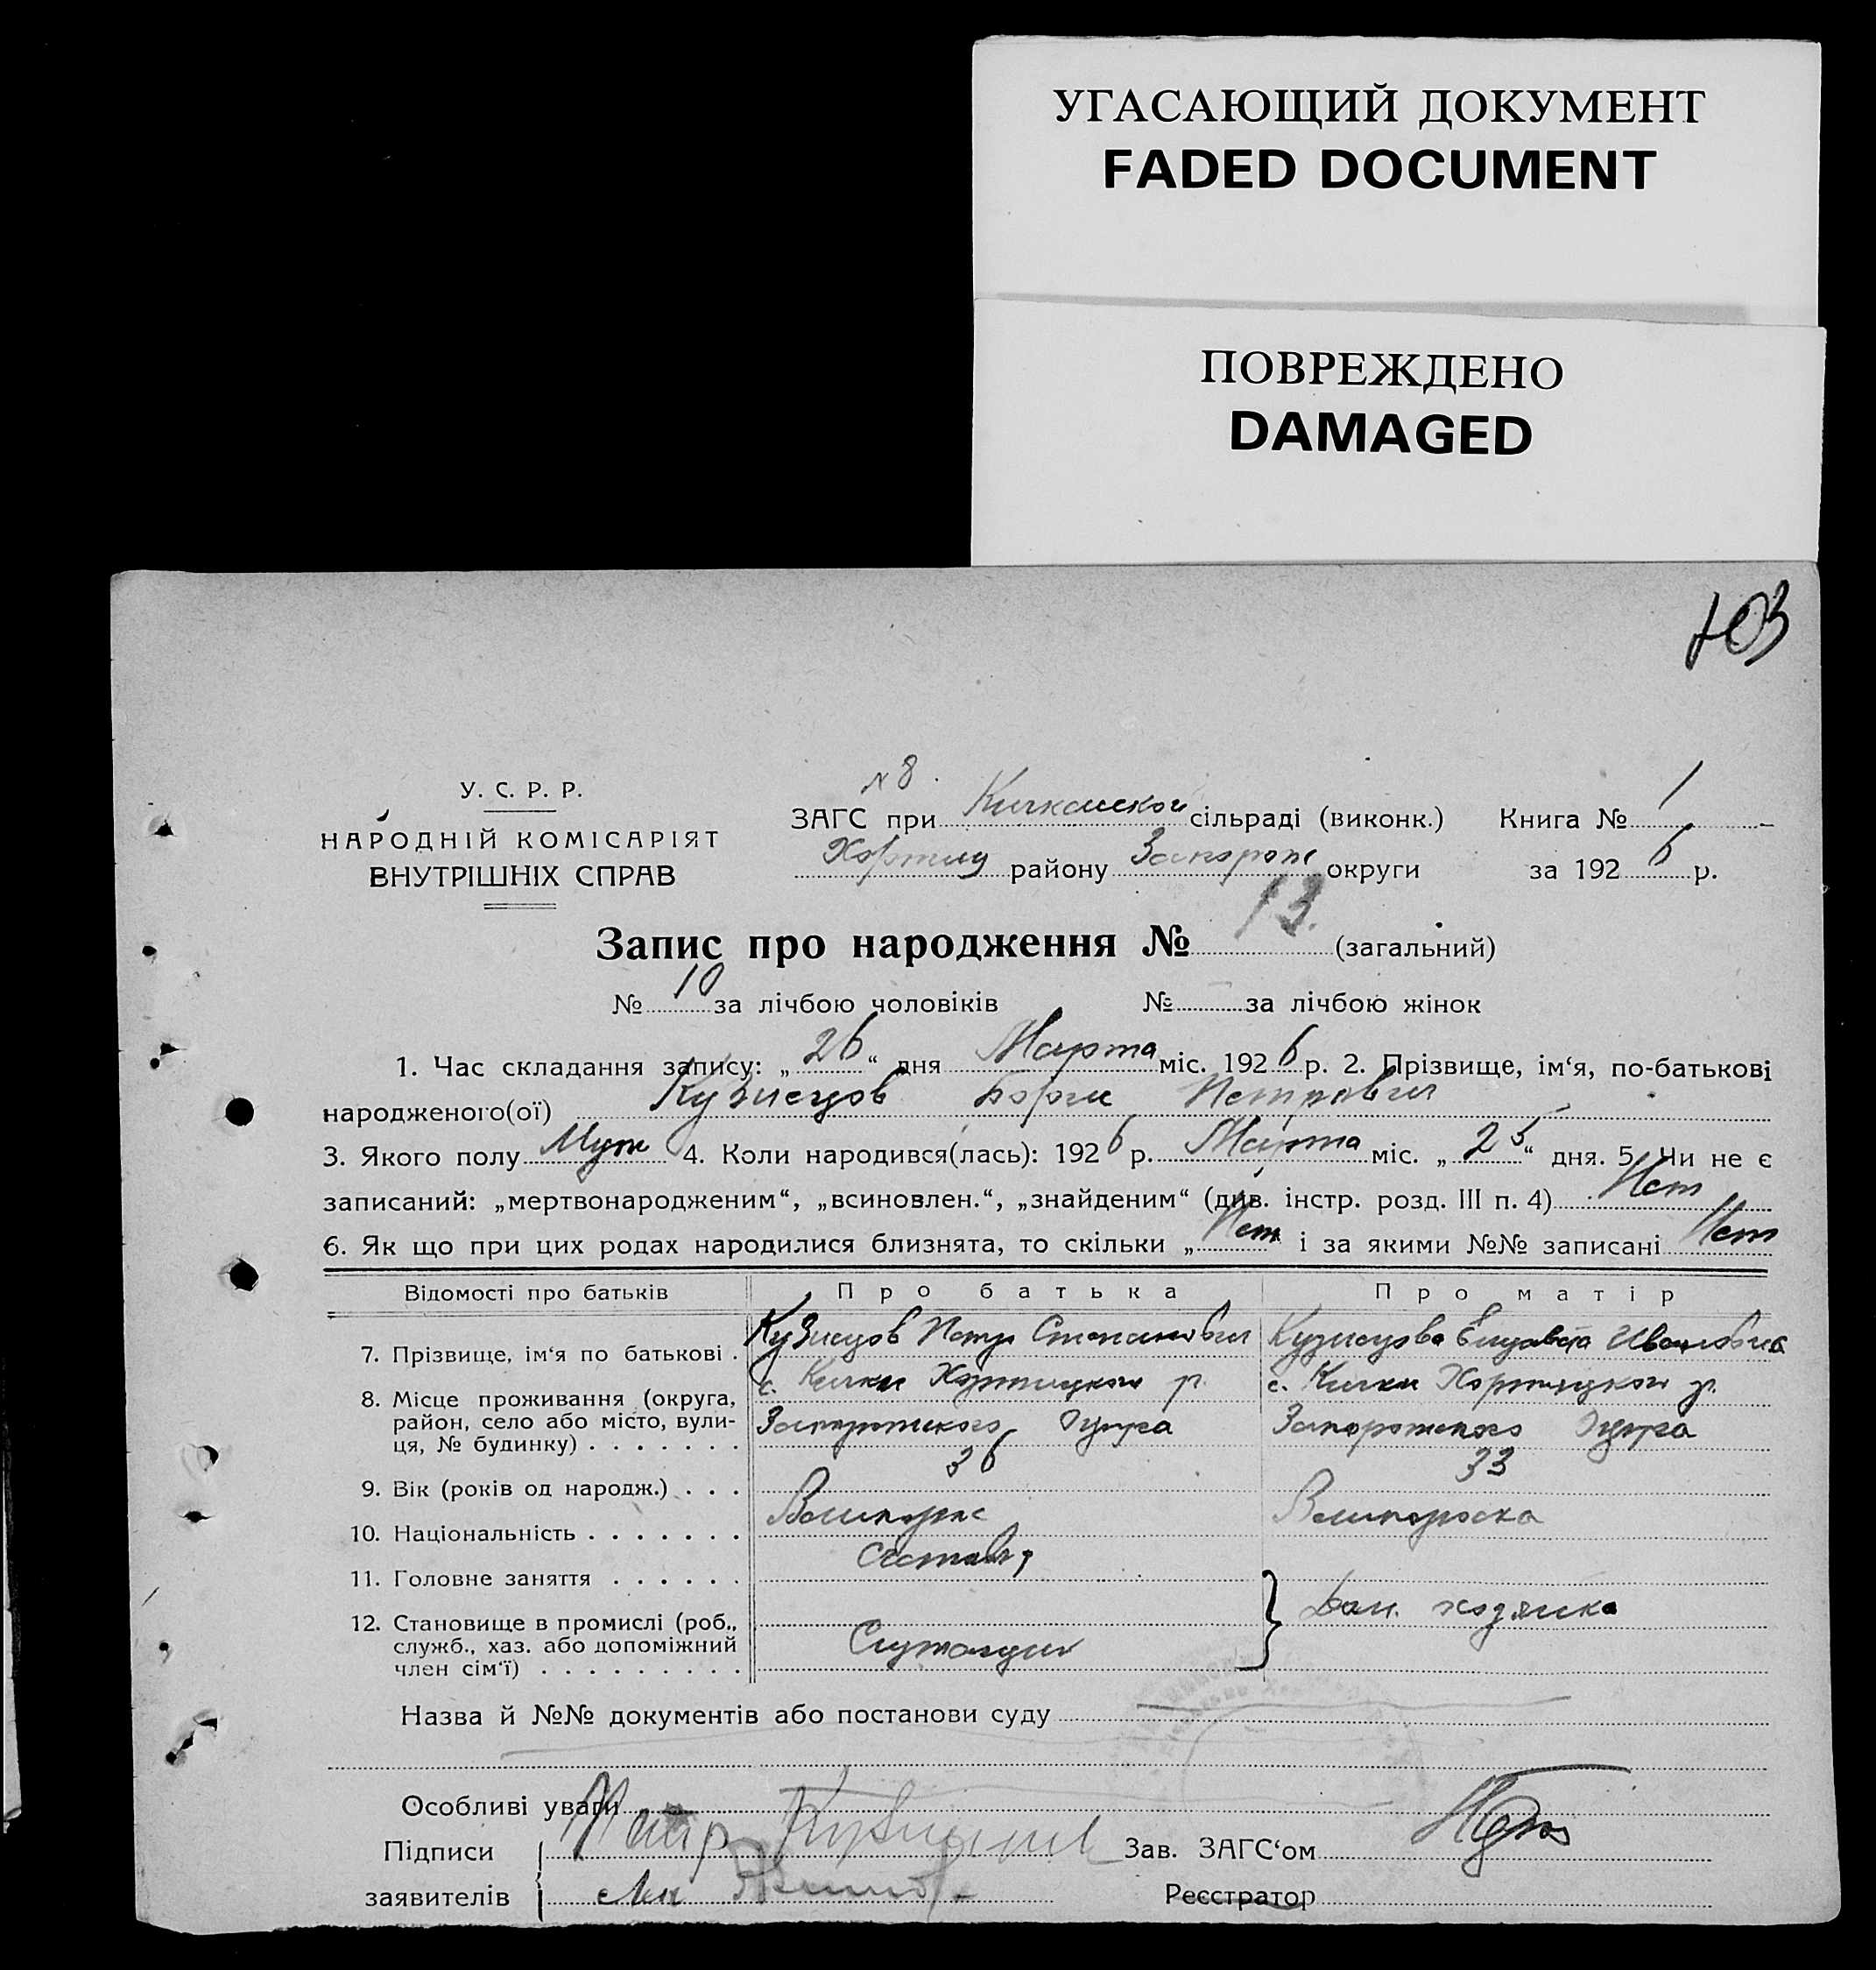 УГАСАЮЩИЙ ДОКУМЕНТ
FADED DOCUMENT
ПОВРЕЖДЕНО
DAMAGED
103
У. С. Р. Р.
НАРОДНІЙ КОМІСАРІЯТ
ВНУТРІШНІХ СПРАВ
№ 8.
ЗАГС при Кичкасской сільраді (виконк.) Книга № 1
Хортиц району Запорож округи за 1926 р.
Запис про народження № 13. (загальний)
№ 10 за лічбою чоловіків № — за лічбою жінок
1. Час складання запису: „26“ дня Марта міс. 1926 р. 2. Прізвище, ім‘я, по-батькові
народженого(ої) Кузнецов Борис Петрович
3. Якого полу Муж 4. Коли народився(лась): 1926 р. Марта міс. „25“ дня. 5. Чи не є
записаний: „мертвонародженим“, „всиновлен.“, „знайденим“ (див. інстр. розд. III п. 4) Нет
6. Як що при цих родах народилися близнята, то скільки „Нет“ і за якими №№ записані Нет
Відомості про батьків Про батька Про матір
7. Прізвище, ім‘я по батькові . Кузнецов Петр Степанович Кузнецова Елизавета Ивановна
8. Місце проживання (округа, с. Кичкас Хортицкого р. с. Кичкас Хортицкого р.
район, село або місто, вули-
ця, № будинку) . . . . . . . Запорожского Округа Запорожского Округа
9. Вік (років од народж.) . . . 36 33
10. Національність . . . . . . . Великорос Великороска
11. Головне заняття . . . . . .
12. Становище в промислі (роб., Дом. хозяйка
служб., хаз. або допоміжний Служащий
член сім‘ї) . . . . . . . . .
Назва й №№ документів або постанови суду
Особливі уваги
Підписи Зав. ЗАГС‘ом
заявителів Реєстратор